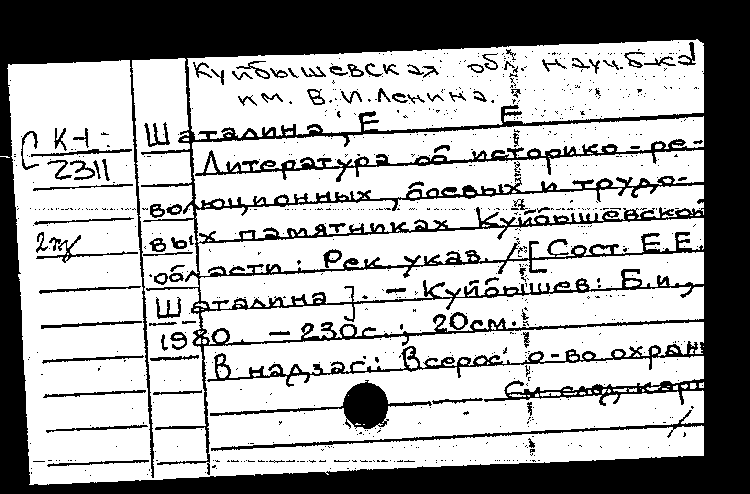 Куйбышевская обл. науч. б-ка
им. В. И. Ленина.
С К-I-
2311
Шаталина, Е Е
Литература об историко-ре-
волюционных, боевых и трудо-
2
вых памятниках Куйбышевской
области: Рек указ. / [Сост. Е.Е.
Шаталина]. - Куйбышев: Б.и.,
1980. - 230с.; 20см.
В надзаг.: Всерос. о-во охран
См. след. карт